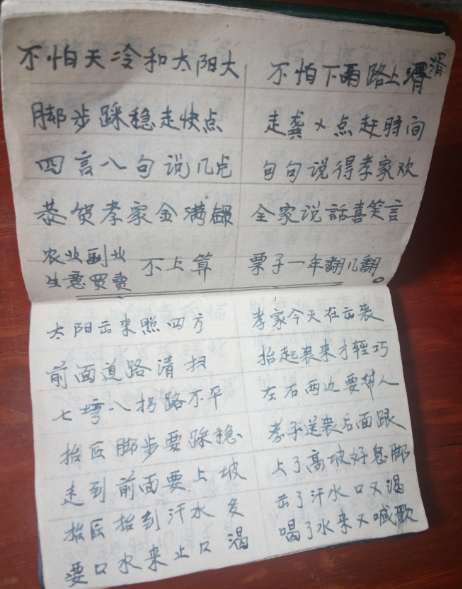 不怕天冷和太阳大 不怕下雨路上滑
脚步踩稳走快点 走龚乂点赶時间
四言八句说几句 句句说得孝家欢
恭贺孝家金满 全家说話喜笑言
农业副业
生意买卖 不上算 栗子一年翻几翻
太阳出来照四方 孝家今天在出丧
前面道路清扫 抬起丧来才轻巧
七弯八拐路不平 左右两边要帮人
抬匠脚步要踩稳 孝子送丧后面跟
走到前面要上坡 上了高坡好息脚
抬匠抬到汗水多 出了汗水口又渴
要口水来止口渴 喝了水来又喊歌